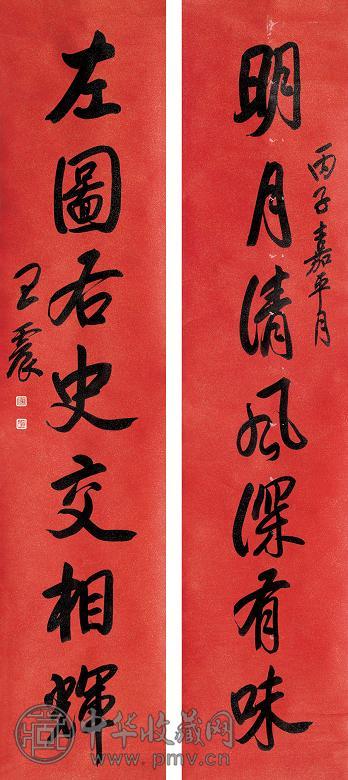 明月清風深有味
丙子嘉平月
左圖右史交相輝
王震
中华收藏网
www.pmv.cn